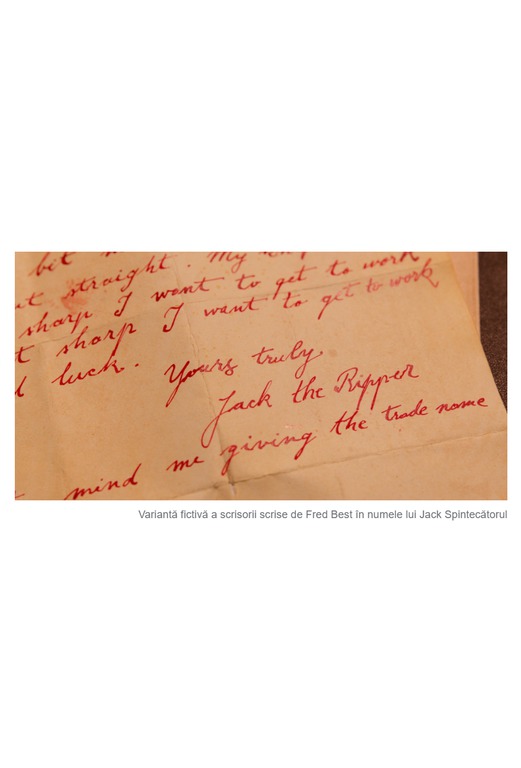 bit
straight. My
sharp I want to get to work
sharp I want to get to work
luck. Yours truly
Jack the Ripper
mind me giving the trade name
Variantă fictivă a scrisorii scrise de Fred Best în numele lui Jack Spintecătorul